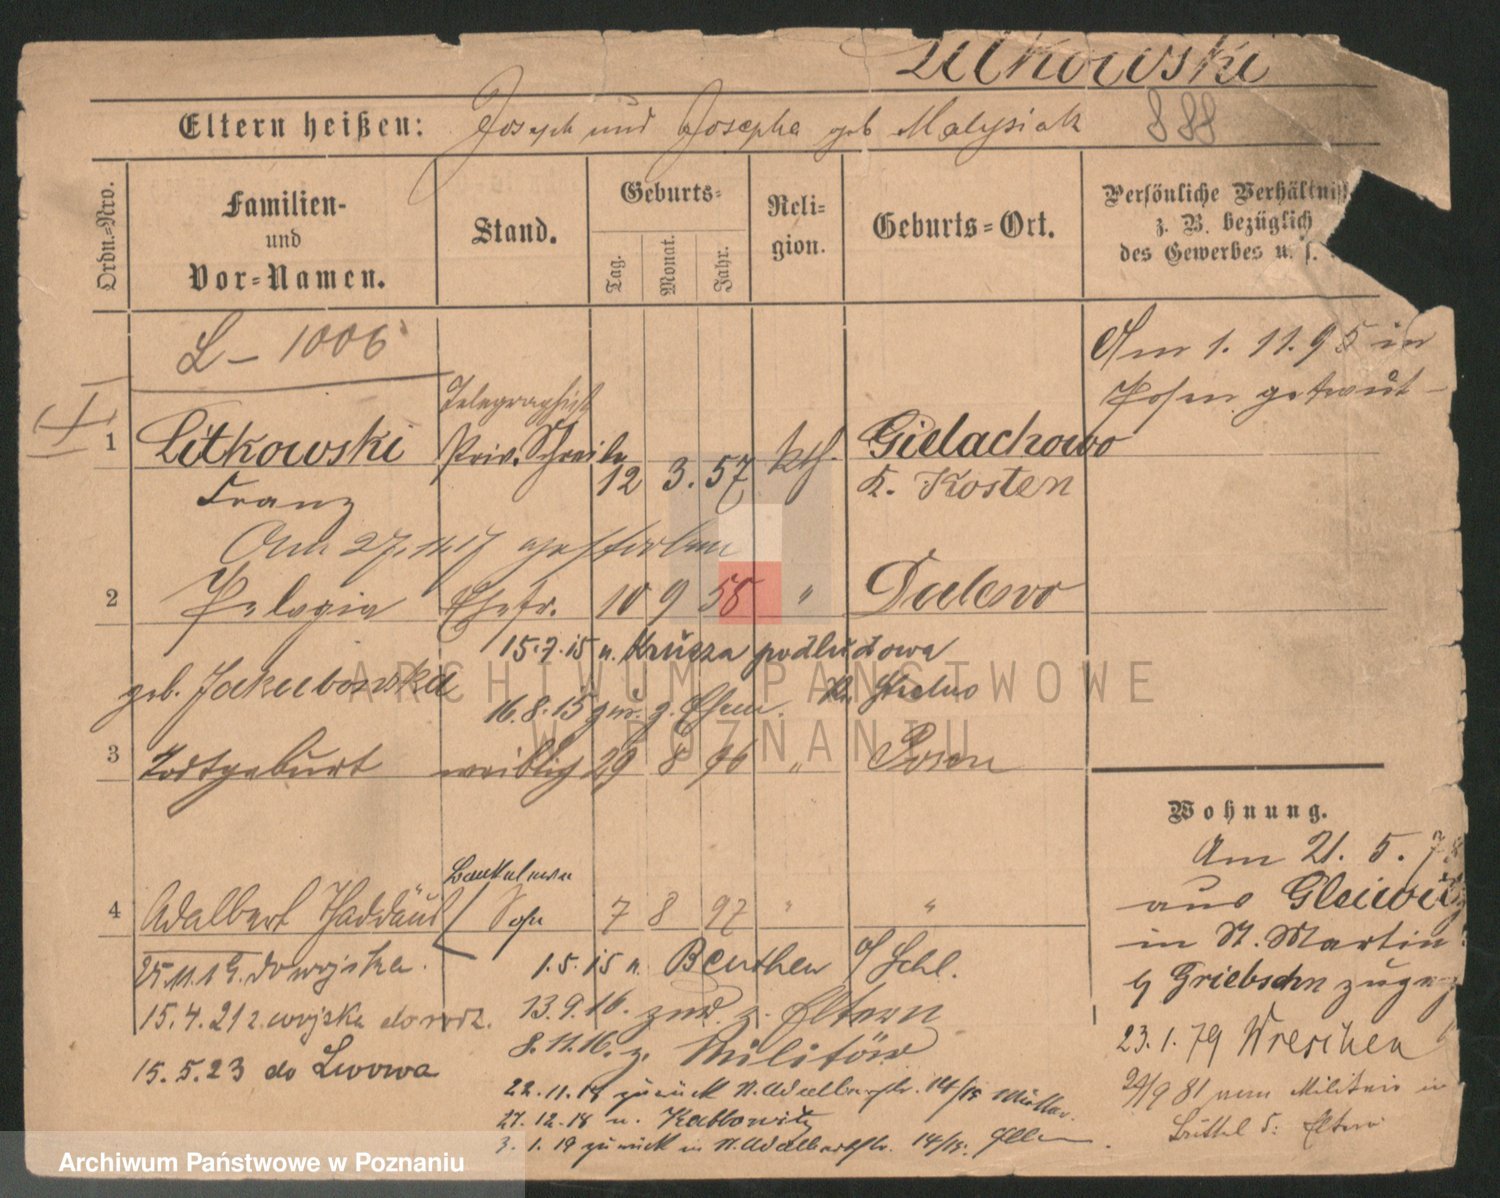 Litkowski
Eltern heißen: Joseph und Josepha geb Malysiak 888
Ordn.-Nro.
Familien-
und
Vor-Namen.
Stand.
Geburts-
Tag. Monat. Jahr.
Reli-
gion.
Geburts-Ort.
Persönliche Verhältniss
z. B. bezüglich
des Gewerbes u. s.
L - 1006
Am 1. 11. 95 in
Posen
Telegraphist
1 Litkowski Priv. Schreiber 12 3. 57 kth. Gielachowo
Franz K. Kosten
Am 27. 11. 17 gestorben
2 Pelagia Ehefr. 10 9 55 " Dalewo
15.7.15 n. Krusza podludowa
geb. Jakubowska Kr. Strelno
16.8.15 zur. z. Ehem.
3 Todtgeburt weiblich 29 8 96 " Posen
Wohnung.
Am 21. 5. 78
aus Gleiwitz
in St. Martin
b Griebsch zugez
23. 1. 79 Wreschen
24/9 81 vom Militair in
d. Eltern
4 Adalbert Thaddäus Sohn 7 8 97 " "
25.11.19. do wojska.
1.5.15 n. Beuthen O/Schl.
15.4.21 z wojska do rodz.
13.9.16. zur. z. Eltern
8.11.16. z. Militär
15.5.23 do Lwowa
22.11.18 zurück N. Adalbertstr. 14/15 Mutter.
27.12.18 n. Kattowitz
3.1.19 zurück in N. Adalbertstr. 14/15.
ARCHIWUM PAŃSTWOWE
W POZNANIU
Archiwum Państwowe w Poznaniu